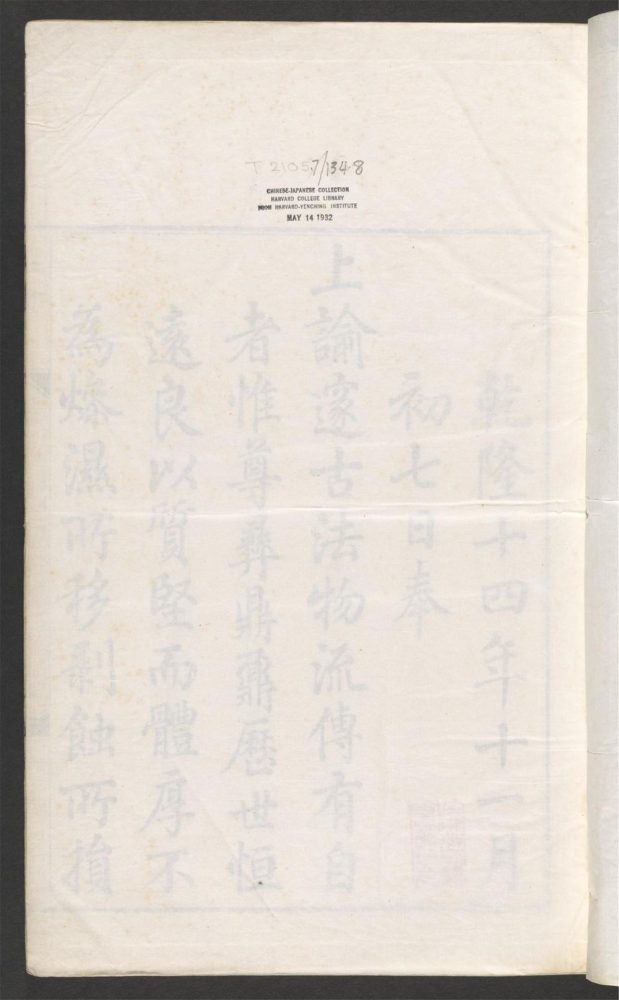 T 2105.7/1348
CHINESE-JAPANESE COLLECTION
HARVARD COLLEGE LIBRARY
FROM HARVARD-YENCHING INSTITUTE
MAY 14 1932
乾隆十四年十一月
初七日奉
上諭邃古法物流傳有自
者惟尊彝鼎鼐歷世恒
遠良以質堅而體厚不
為燥濕所移剥蝕所損